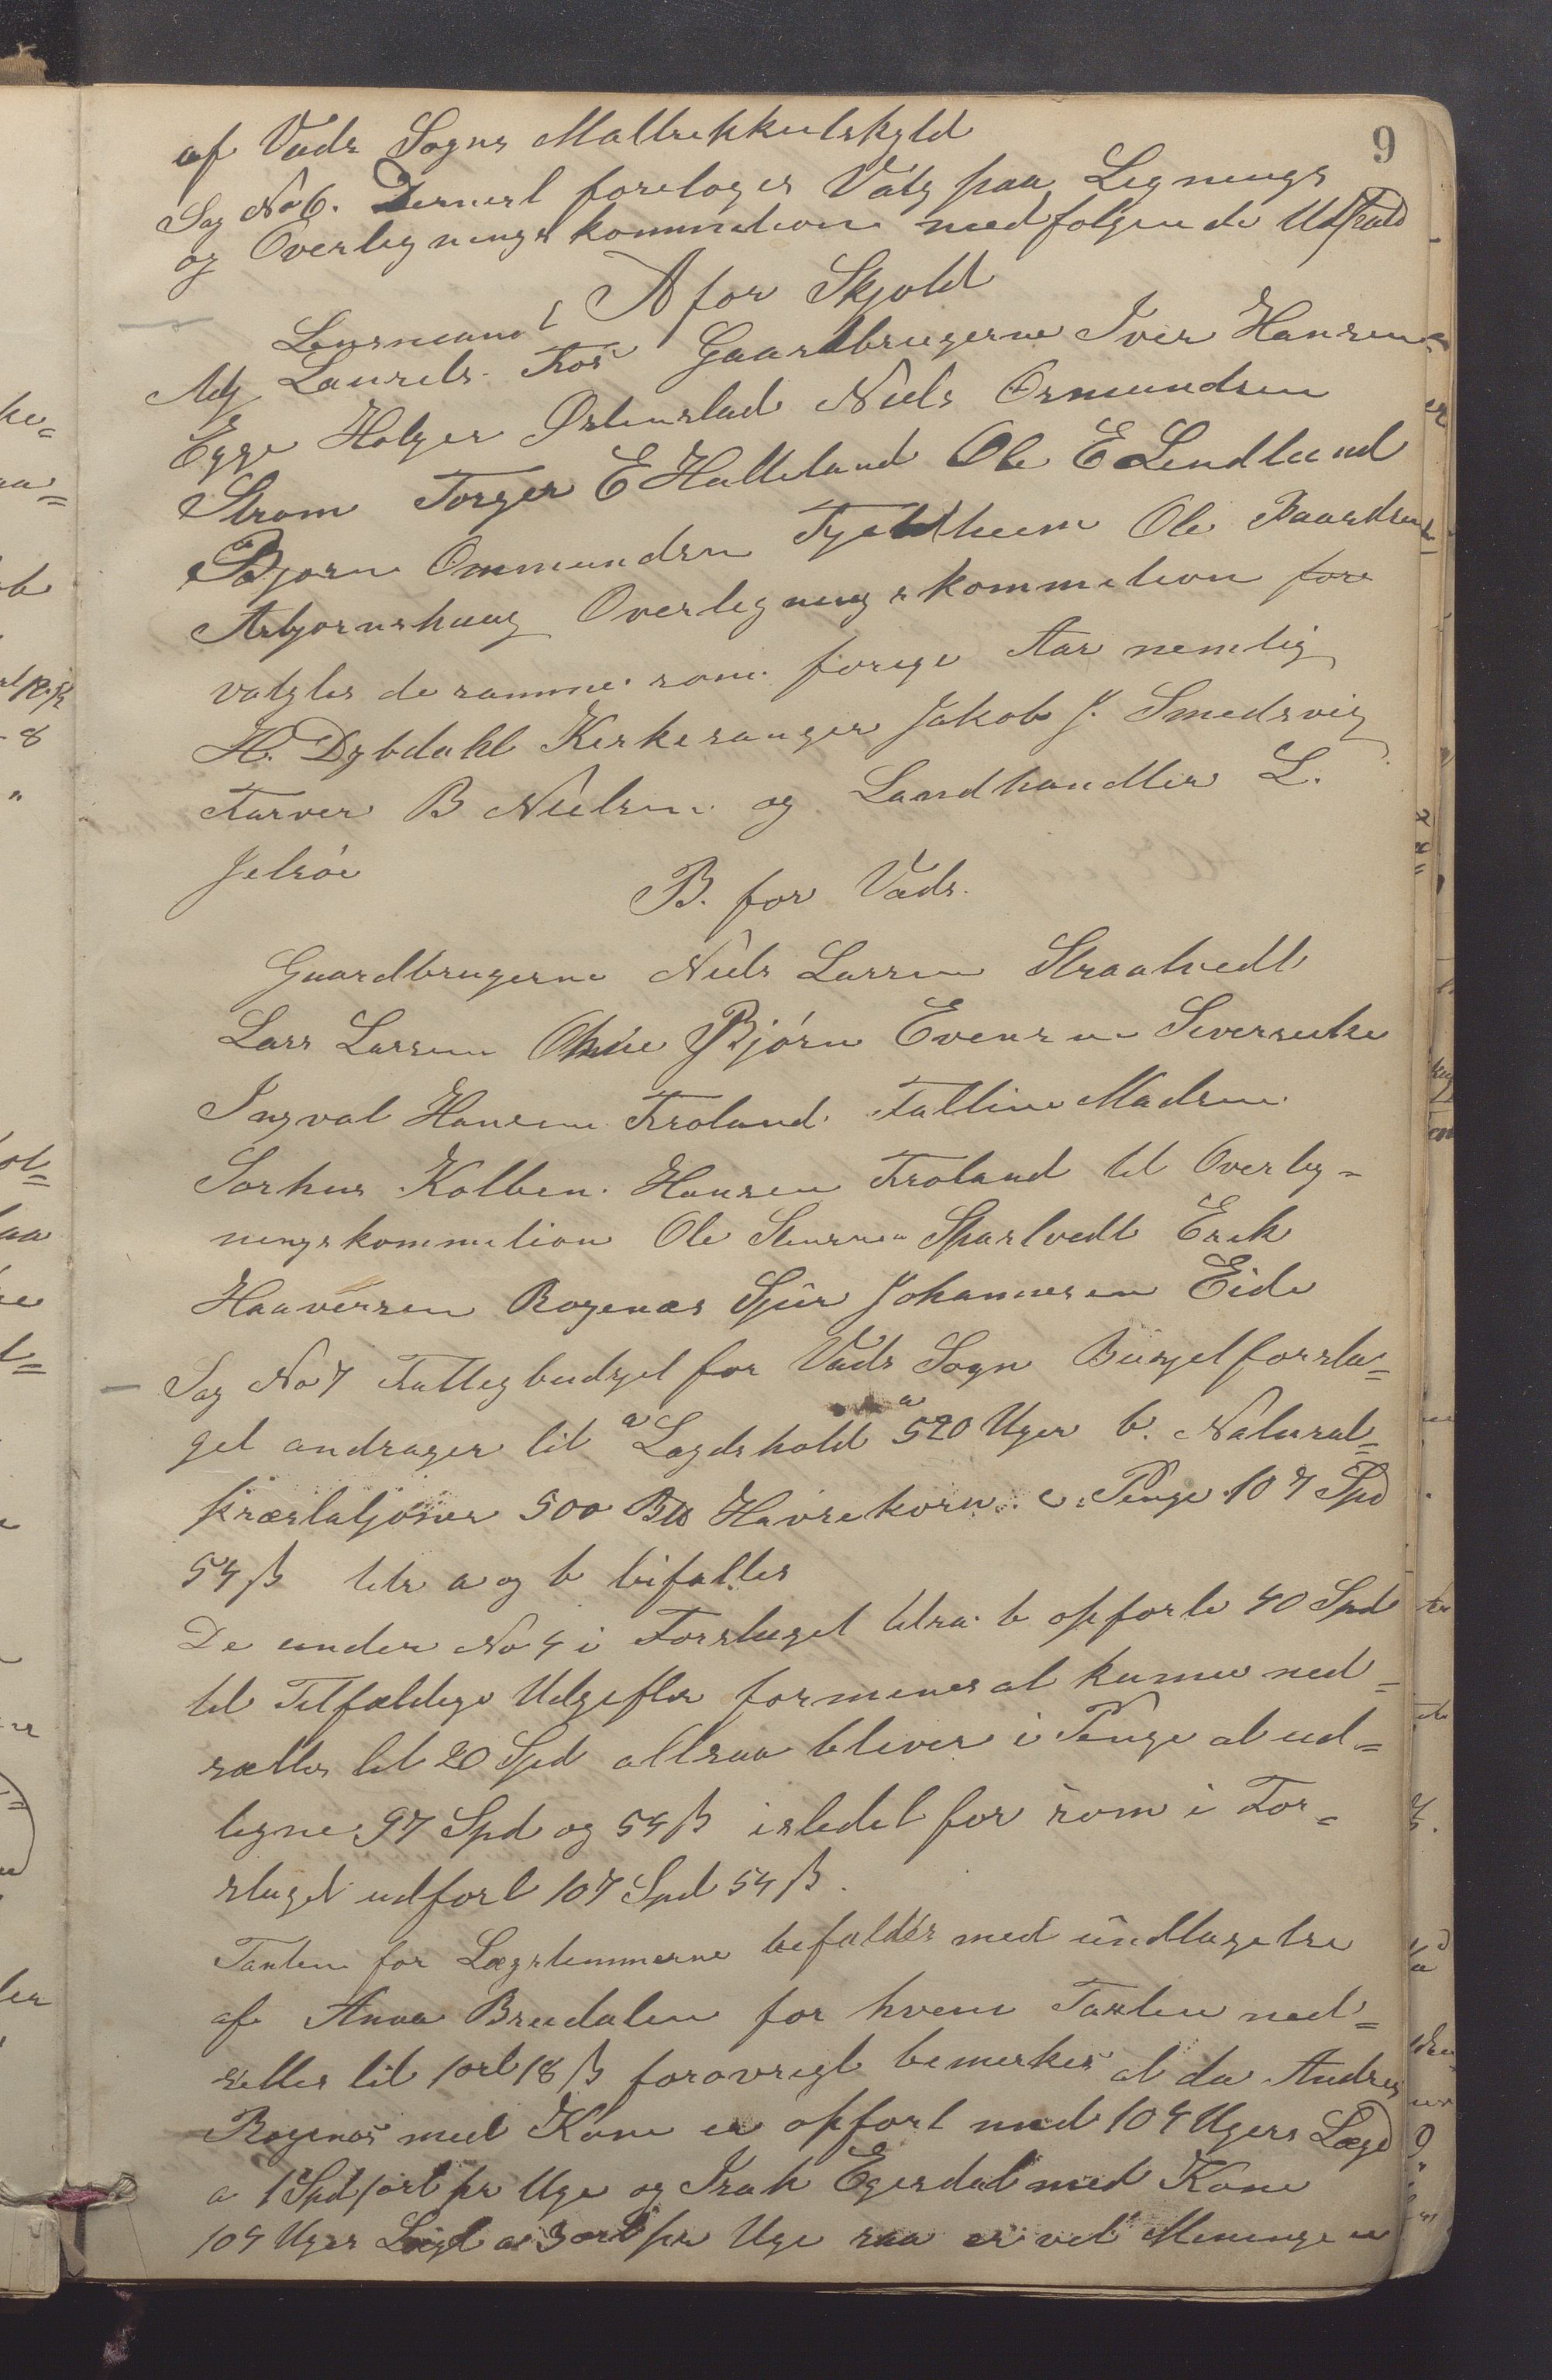 9
af Vads Sogns Mattrikkulskyld
Sag No 6. Dernest foretoges Valg paa Lignings
og Overligningskommition med følgende Udfald
A for Skjold
Lensmand
Laurels Gaardbrugerne Iver Hansen
Egge Holger Østenstad Niels Osmundsen
Strøm Torger E Halleland Ole E Lendland
Bjørn Ommundsen Ole Baardsen
Asbjornshaug Overligningskommition fore
valgtes de samme som forige Aar nemlig
H. Dybdahl Kirkesanger Jakob J. Smedsvig
Farver B Nielsen og Landhandler L.
Jelsøe
B. for Vads.
Gaardbrugerne Niels Larsen Straatvedt
Lars Larsen Bjørn Evensen
Ingval Hansen Frøland Madsen
Sørhus Kolben Hansen Frøland til Overlig-
ningskommition Ole Stensen Spartvedt Erik
Haaversen Rogenæs Sjur Johannesen Eide
Sag No 7 Fattigbudget for Vads Sogn Büdgetforsla-
get andrager til a Lægdshold 520 Uger b. Natural-
præstatjoner 500 Havrekorn c. Penge 107 Spd
54 ß litr a og b bifaltes
De under No 4 i Forslaget litra b opførte 40 Spd
til Tilfældige Udgifter formenes at kunne ned-
sættes til 20 Spd altsaa bliver i Penge at ud-
ligne 97 Spd og 54 ß istedet for som i For-
slaget udført 107 Spd 54 ß.
Taxten for Lægslemmerne bifaldes med undtagelse
af Anna Bredalen for hvem Taxten ned-
settes til 1 ort 18 ß forøvrigt bemerkes at da Andres
Rogenæs med Kone er opført med 104 Ugers Lægd
a 1 Spd 1 ort pr Uge og Isak Egesdal med Kone
104 Uger Lægd a 3 ort pr Uge saa er vel Meningen